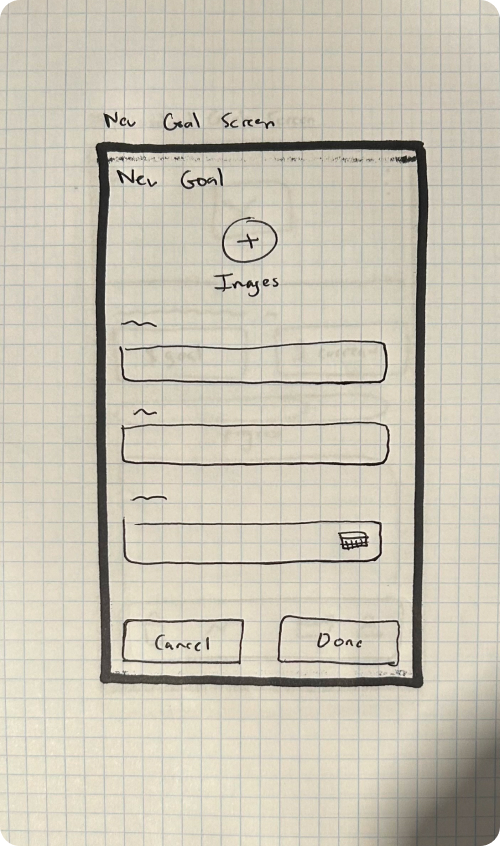 New Goal Screen
New Goal
+
Images
Cancel
Done